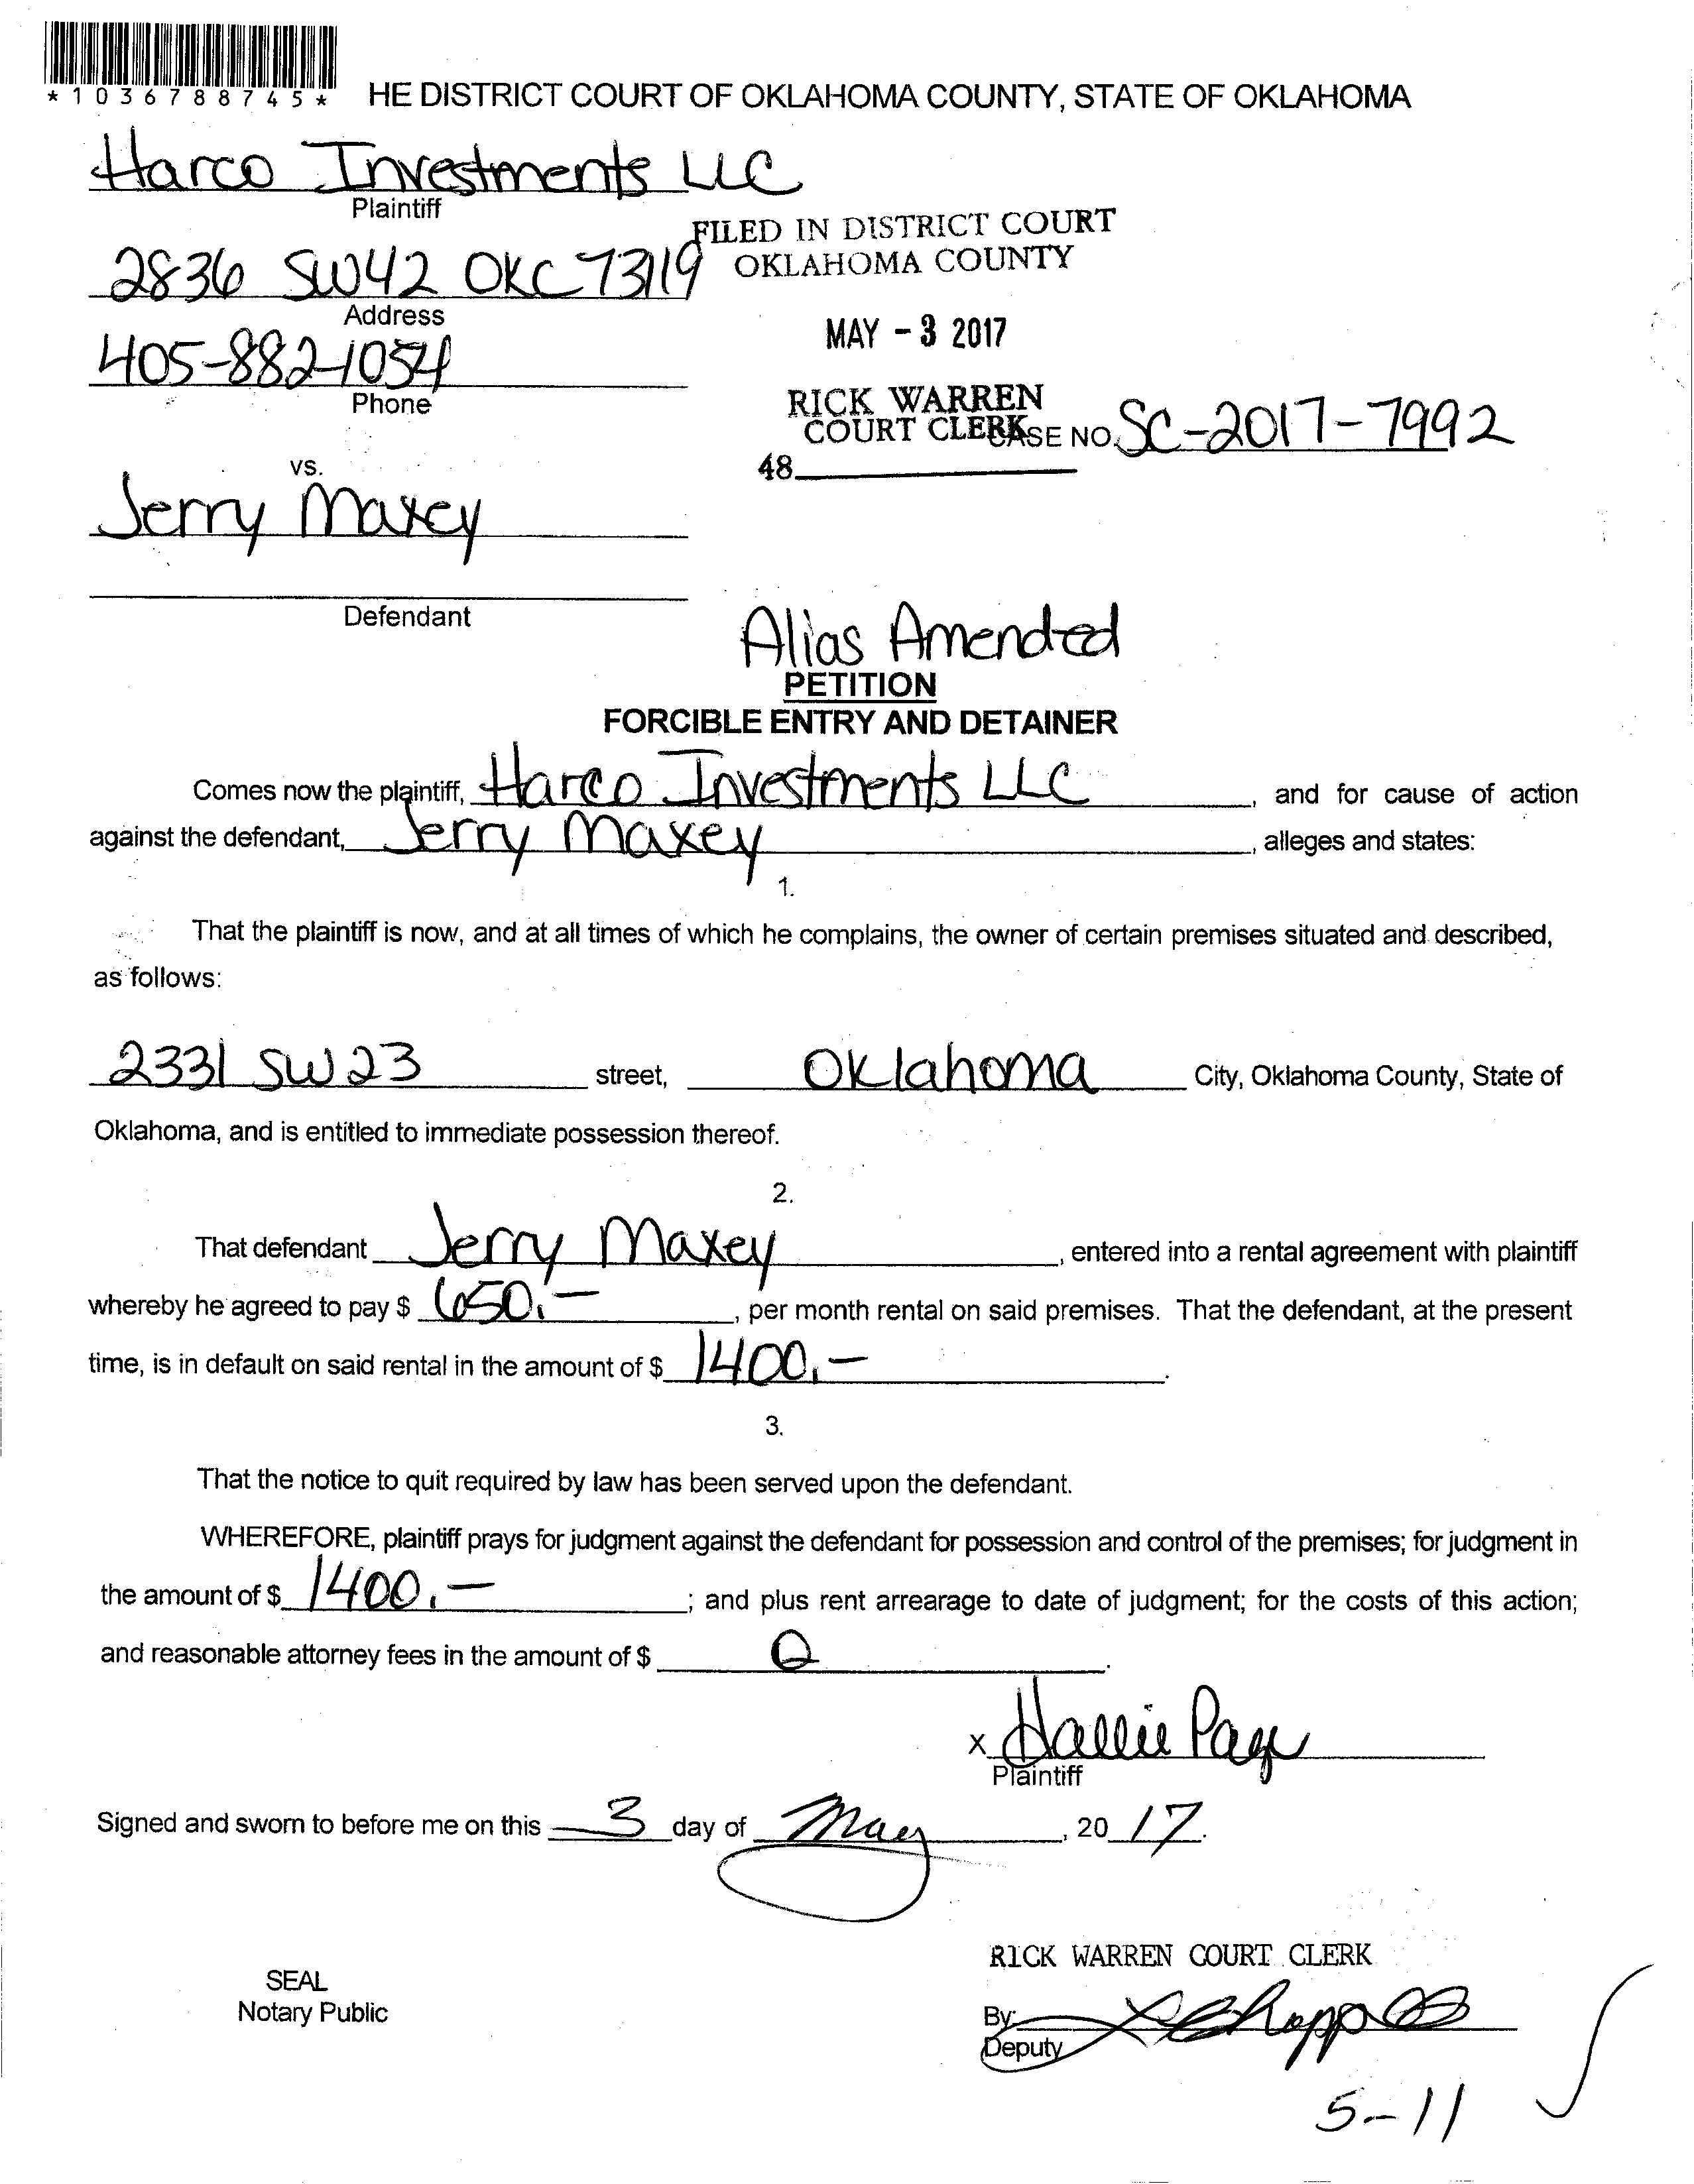 *1036788745*
HE DISTRICT COURT OF OKLAHOMA COUNTY, STATE OF OKLAHOMA
Harco Investments LLC
Plaintiff
FILED IN DISTRICT COURT
OKLAHOMA COUNTY
2836 SW42 OKC 73119
Address
MAY - 3 2017
405-882-1054
Phone
RICK WARREN
COURT CLERK
CASE NO. SC-2017-7992
48
vs.
Jerry Maxey
Defendant
Alias Amended
PETITION
FORCIBLE ENTRY AND DETAINER
Comes now the plaintiff, Harco Investments LLC, and for cause of action
against the defendant, Jerry Maxey, alleges and states:
1.
That the plaintiff is now, and at all times of which he complains, the owner of certain premises situated and described,
as follows:
2331 SW 23 street, Oklahoma City, Oklahoma County, State of
Oklahoma, and is entitled to immediate possession thereof.
2.
That defendant Jerry Maxey, entered into a rental agreement with plaintiff
whereby he agreed to pay $ 650.-, per month rental on said premises. That the defendant, at the present
time, is in default on said rental in the amount of $ 1400.-.
3.
That the notice to quit required by law has been served upon the defendant.
WHEREFORE, plaintiff prays for judgment against the defendant for possession and control of the premises; for judgment in
the amount of $ 1400.-; and plus rent arrearage to date of judgment; for the costs of this action;
and reasonable attorney fees in the amount of $ 0.
x Hallie Page
Plaintiff
Signed and sworn to before me on this 3 day of May, 20 17.
RICK WARREN COURT CLERK
SEAL
Notary Public
By:
Deputy
5-11